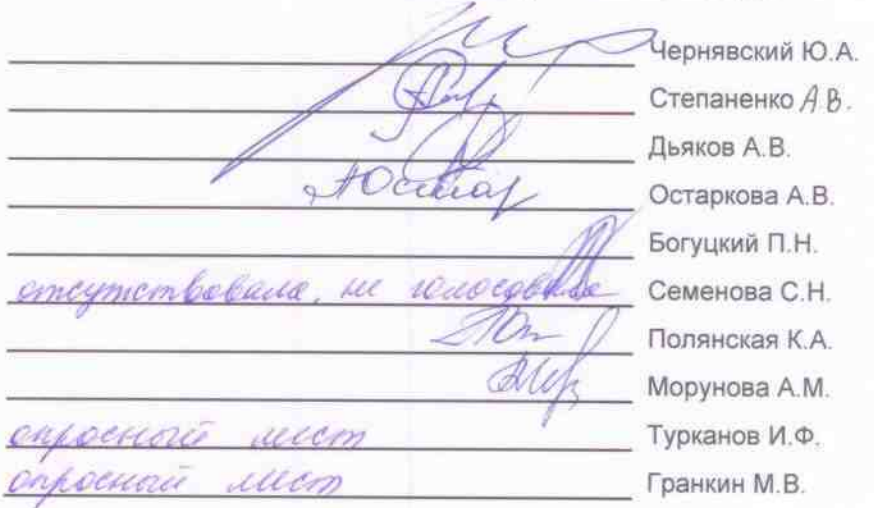 Чернявский Ю.А.
Степаненко А.В.
Дьяков А.В.
Остаркова А.В.
Богуцкий П.Н.
отсутствовала, не голосовала Семенова С.Н.
Полянская К.А.
Морунова А.М.
опросный лист Турканов И.Ф.
опросный лист Гранкин М.В.